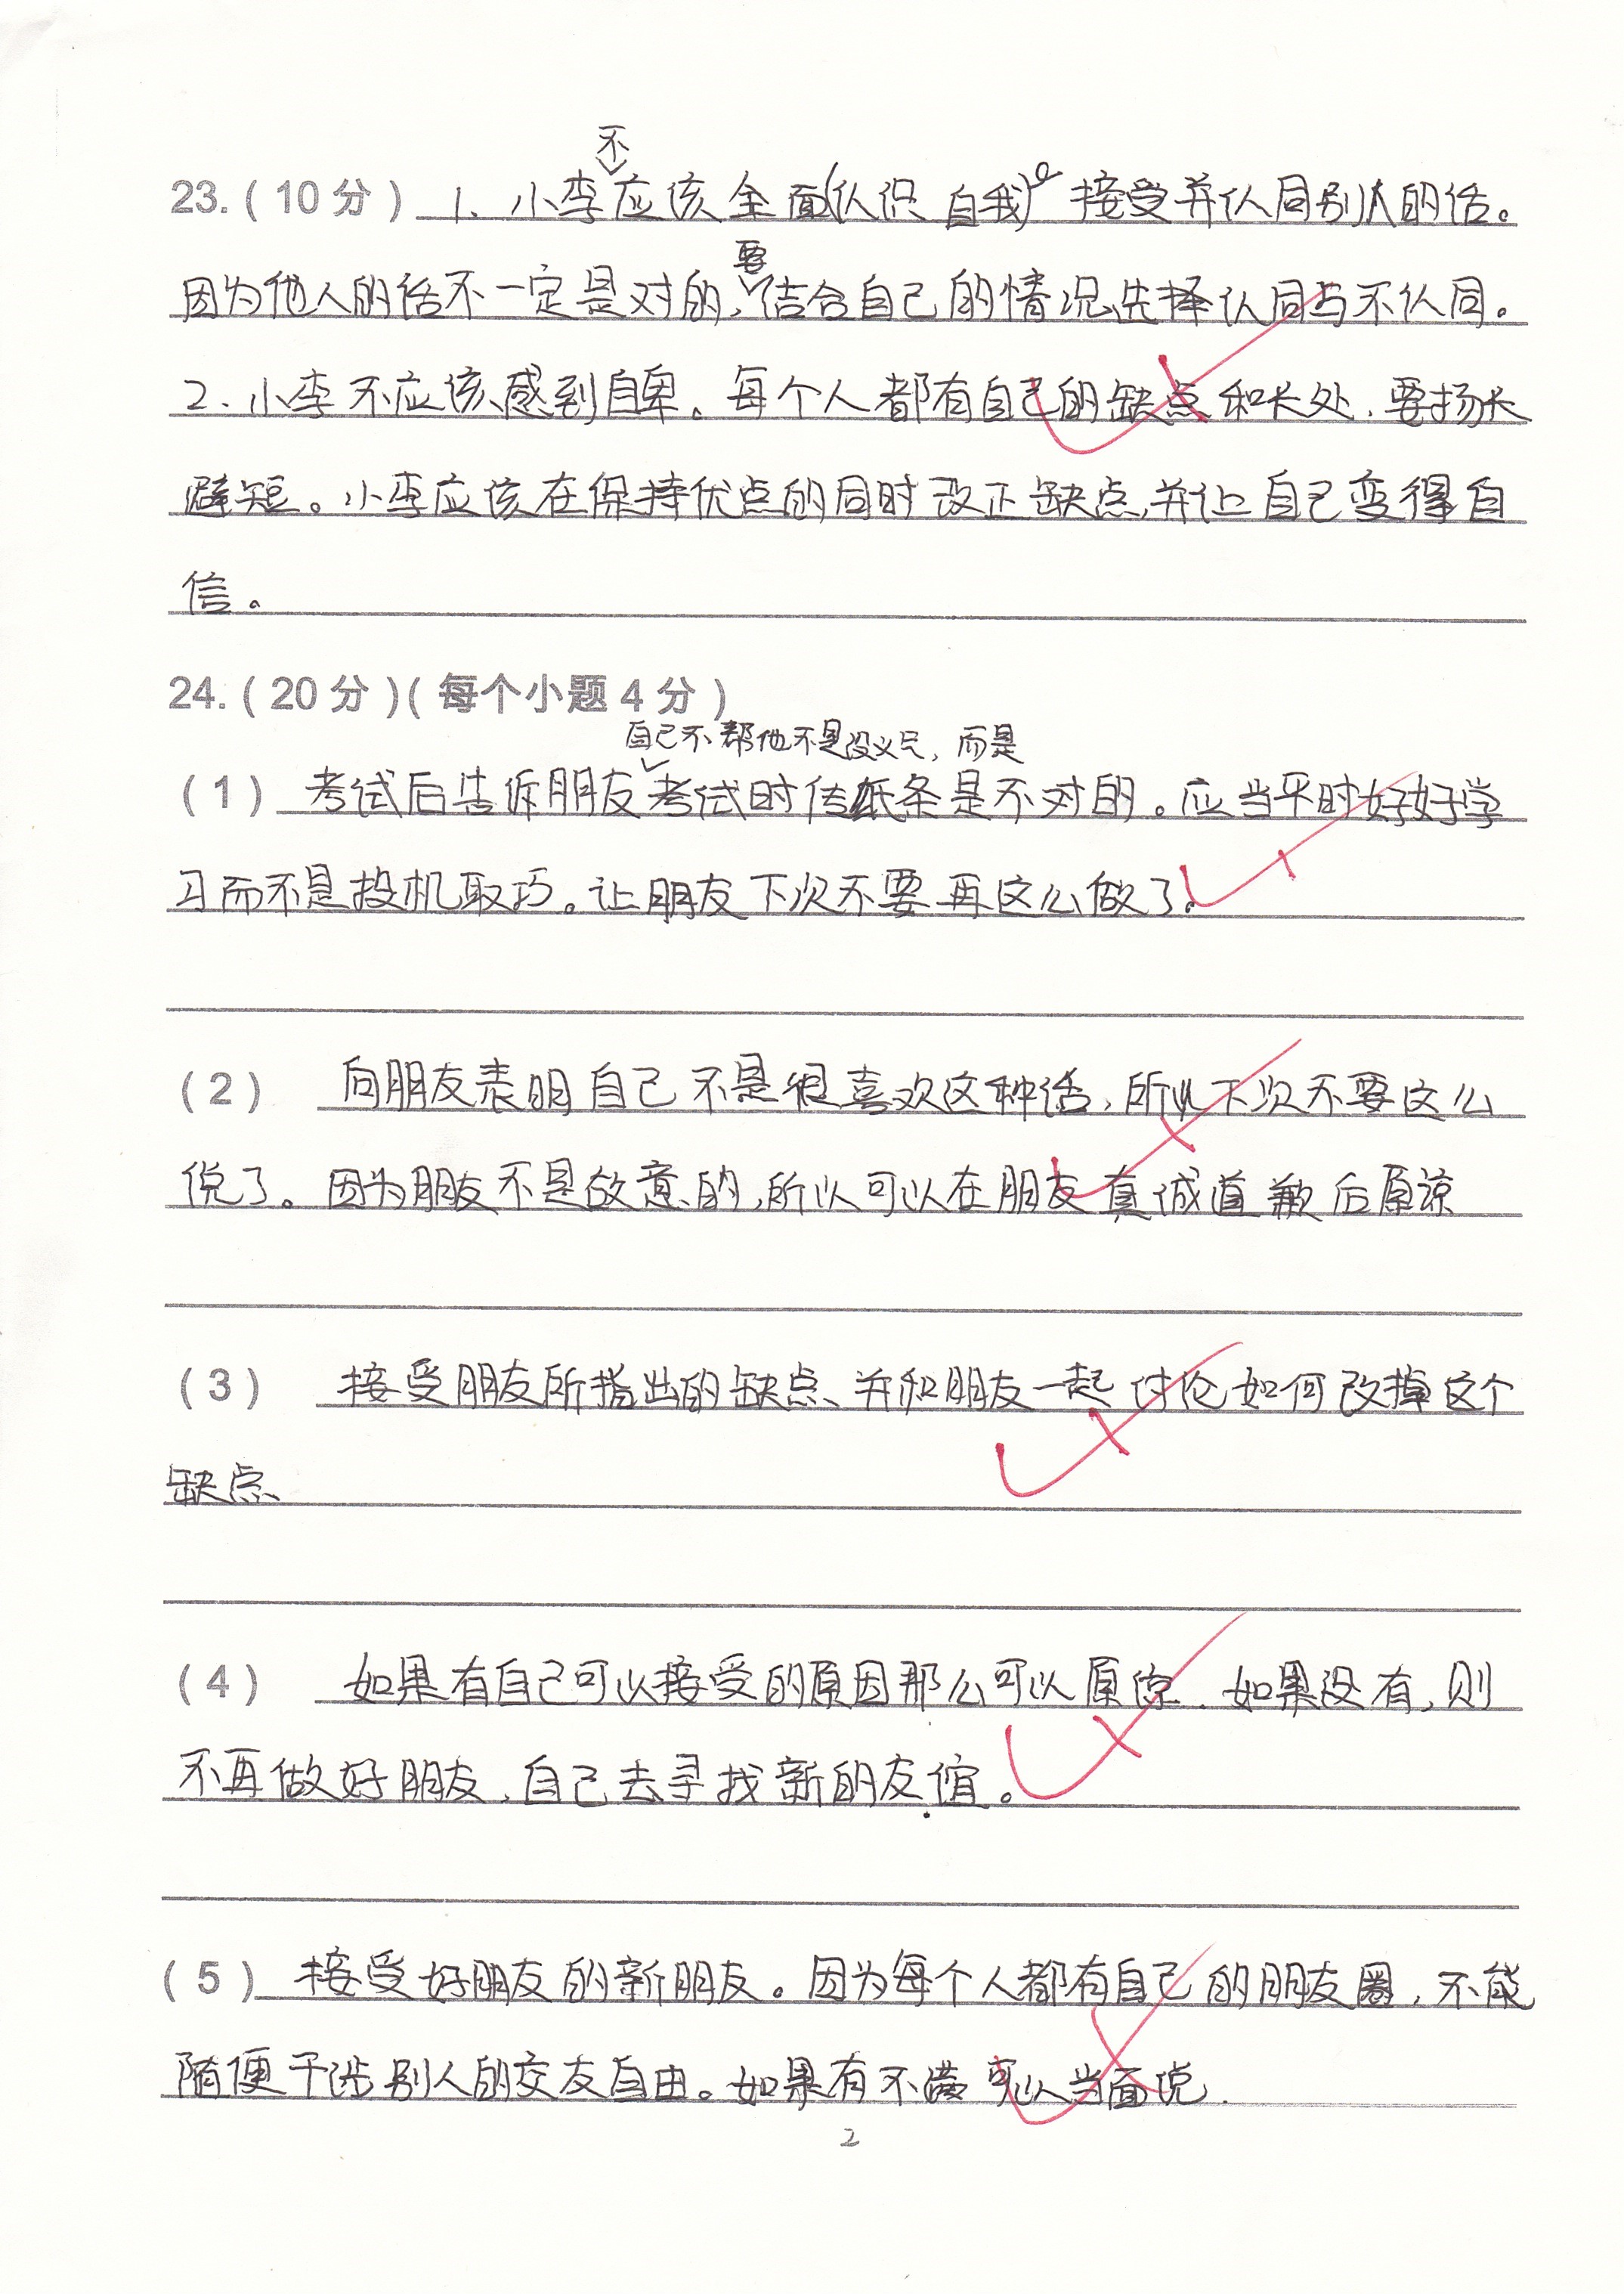 不
23.(10分) 1、小李应该全面(认识自我)接受并认同别人的话。
要
因为他人的话不一定是对的,结合自己的情况选择认同与不认同。
2.小李不应该感到自卑。每个人都有自己的缺点和长处,要扬长
避短。小李应该在保持优点的同时改正缺点,并让自己变得自
信。
24.(20分)(每个小题4分)
自己不帮他不是没义气,而是
(1) 考试后告诉朋友考试时传纸条是不对的。应当平时好好学
习而不是投机取巧。让朋友下次不要再这么做了。
(2) 向朋友表明自己不是很喜欢这种话,所以下次不要这么
说了。因为朋友不是故意的,所以可以在朋友真诚道歉后原谅
(3) 接受朋友所指出的缺点、并和朋友一起讨论如何改掉这个
缺点、
(4) 如果有自己可以接受的原因那么可以原谅.如果没有,则
不再做好朋友,自己去寻找新的友谊。
(5) 接受好朋友的新朋友。因为每个人都有自己的朋友圈,不能
随便干涉别人的交友自由。如果有不满可以当面说.
2